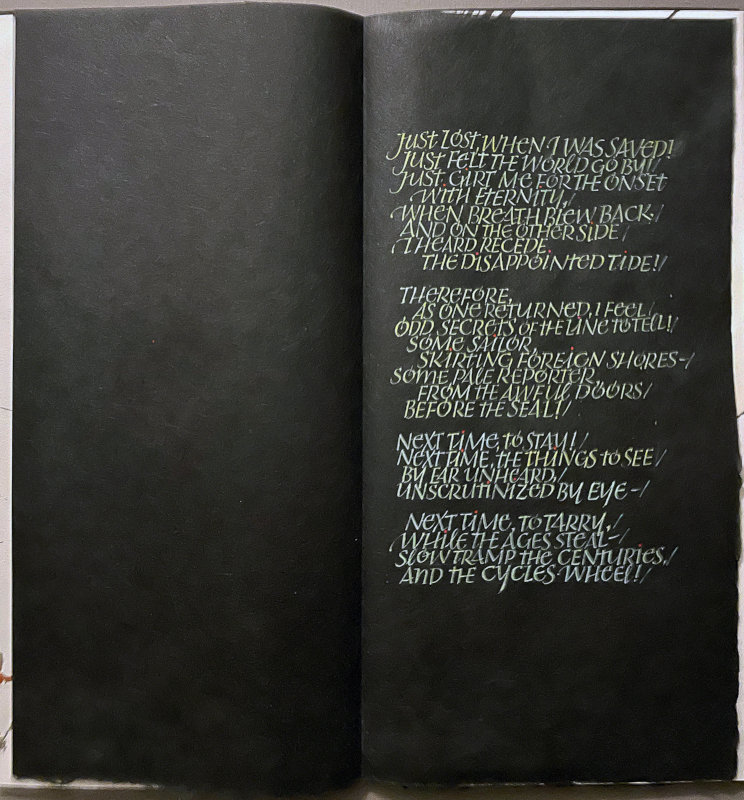 JUST LOST, WHEN I WAS SAVED!
JUST FELT THE WORLD GO BY!/
JUST GIRT ME FOR THE ONSET
WITH ETERNITY,/
WHEN BREATH BLEW BACK,/
AND ON THE OTHER SIDE/
I HEARD RECEDE
THE DISAPPOINTED TIDE!/
THEREFORE,
AS ONE RETURNED, I FEEL/
ODD SECRETS OF THE LINE TO TELL!/
SOME SAILOR,
SKIRTING FOREIGN SHORES-/
SOME PALE REPORTER,
FROM THE AWFUL DOORS/
BEFORE THE SEAL!/
NEXT TIME, TO STAY!/
NEXT TIME, THE THINGS TO SEE/
BY EAR UNHEARD,/
UNSCRUTINIZED BY EYE-/
NEXT TIME, TO TARRY,/
WHILE THE AGES STEAL-/
SLOW TRAMP THE CENTURIES,/
AND THE CYCLES WHEEL!/